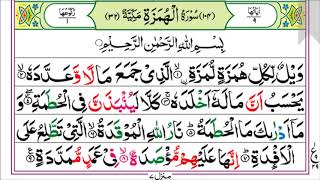 اٰیاتها ۹ (۱۰۴) سُوْرَةُ الْهُمَزَةِ مَكِّيَّةٌ (۳۲) رکوعها ۱
بِسْمِ اللّٰهِ الرَّحْمٰنِ الرَّحِيْمِ
وَيْلٌ لِّكُلِّ هُمَزَةٍ لُّمَزَةِ ۙ۟ ۨالَّذِيْ جَمَعَ مَالًا وَّعَدَّدَهٗ ۙ
يَحْسَبُ اَنَّ مَالَهٗۤ اَخْلَدَهٗ ۚ كَلَّا لَيُنْۢبَذَنَّ فِي الْحُطَمَةِ ۖ وَ
مَاۤ اَدْرٰىكَ مَا الْحُطَمَةُ ؕ نَارُ اللّٰهِ الْمُوْقَدَةُ ۙ الَّتِيْ تَطَّلِعُ عَلَى
الْاَفْـِٕدَةِ ؕ اِنَّهَا عَلَيْهِمْ مُّؤْصَدَةٌ ۙ فِيْ عَمَدٍ مُّمَدَّدَةٍ ۠
منزل ۷